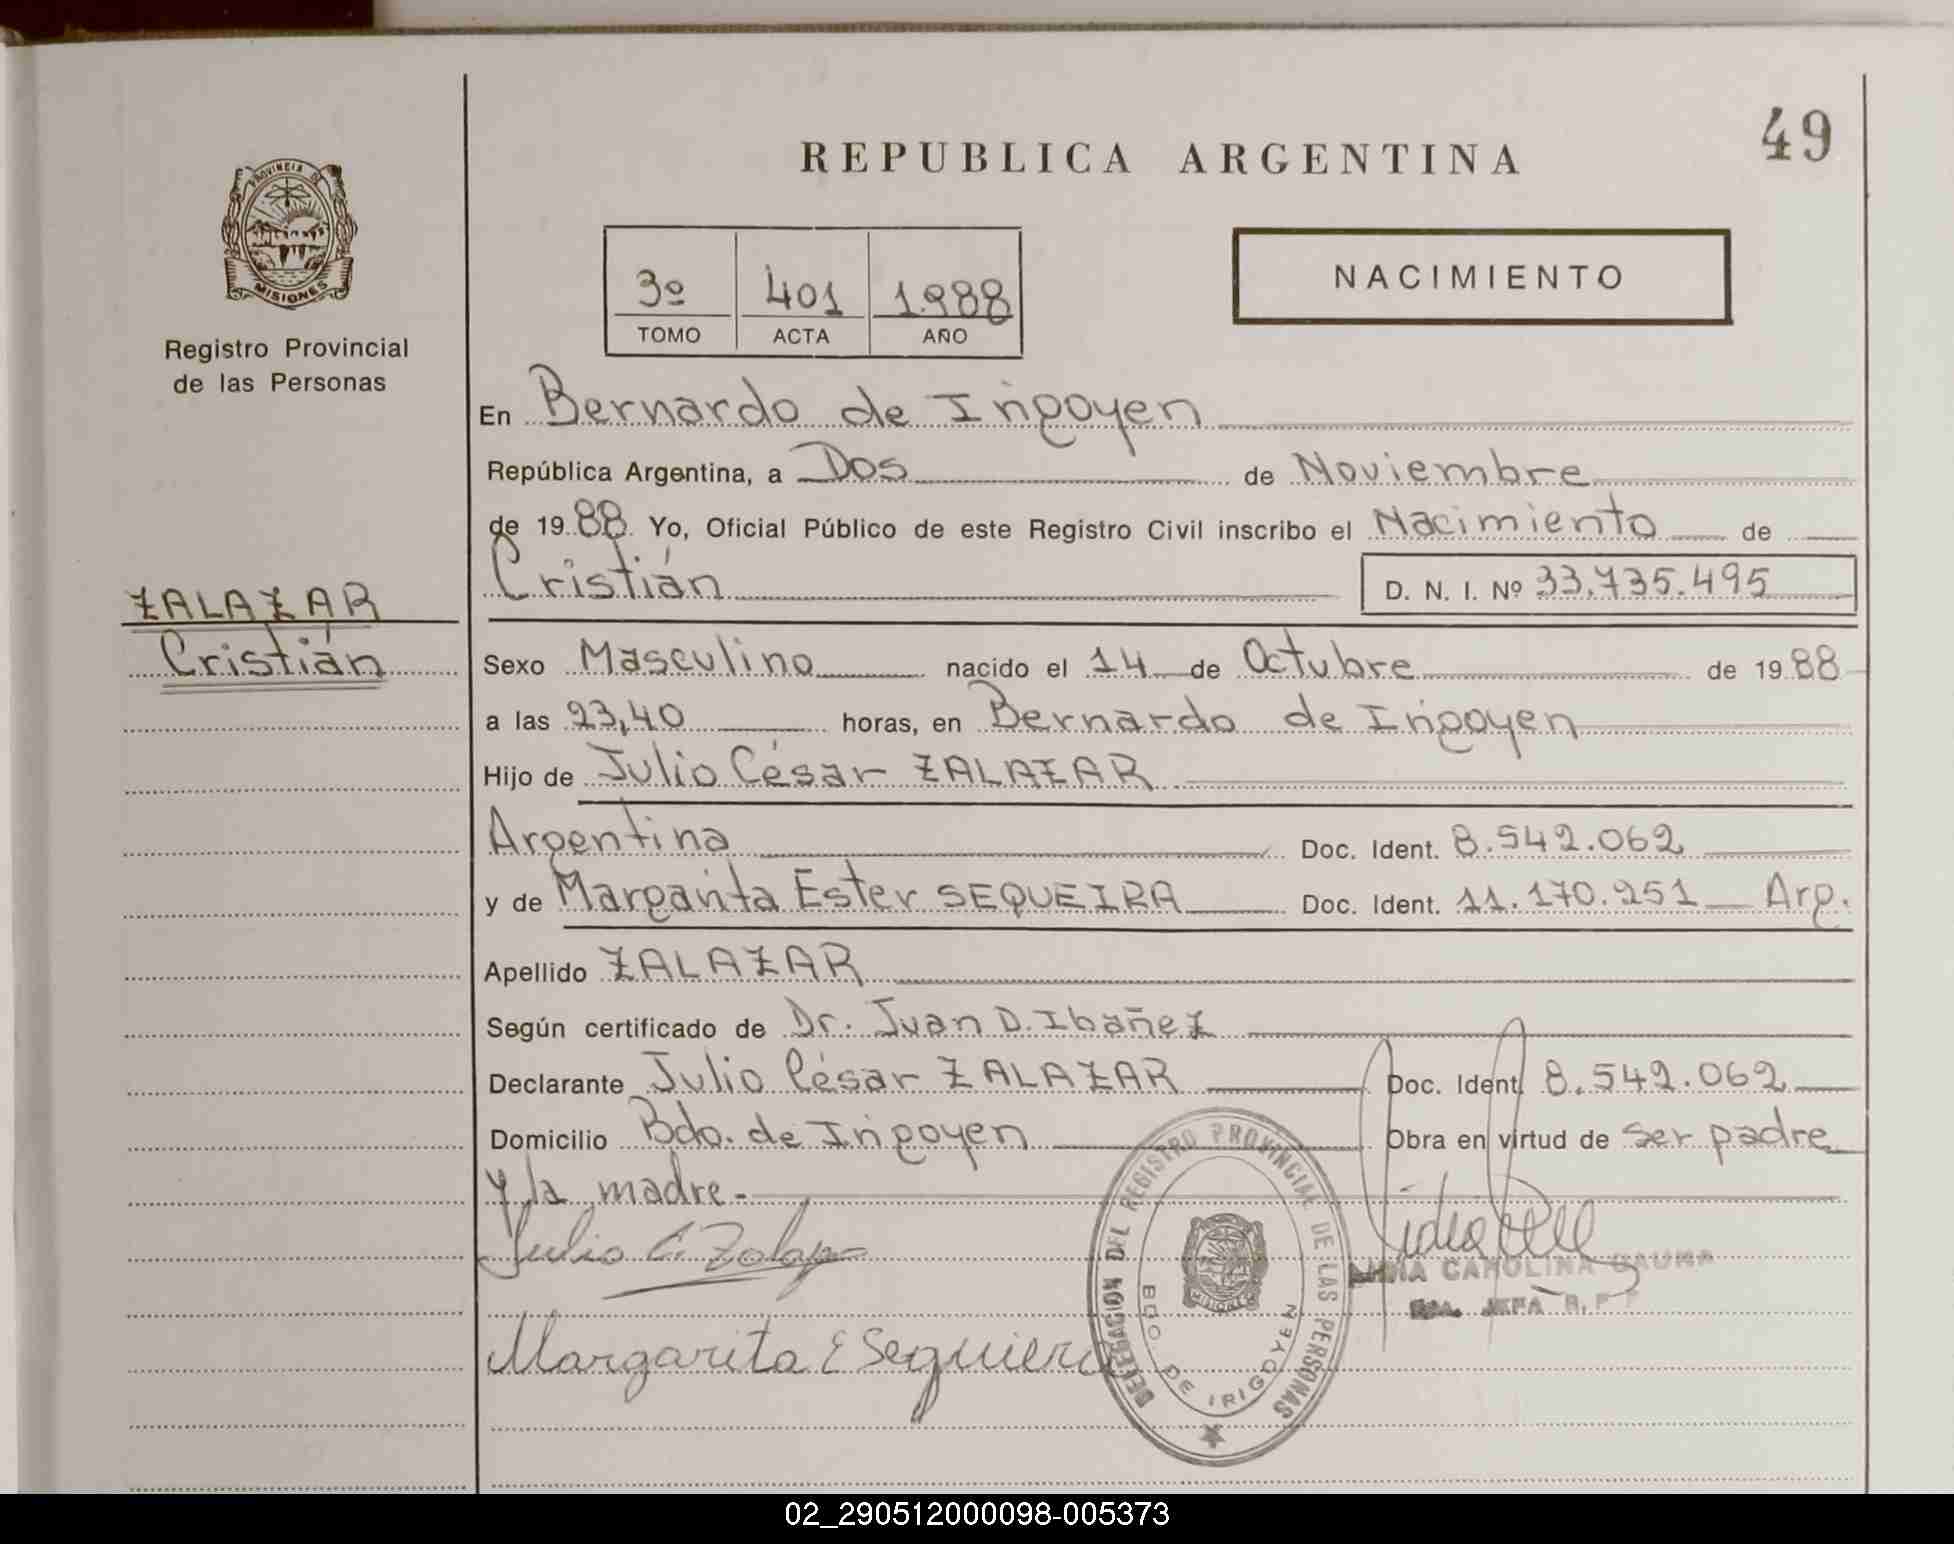 49
REPUBLICA ARGENTINA
PROVINCIA DE
MISIONES
Registro Provincial
de las Personas
3º 401 1.988
TOMO ACTA AÑO
NACIMIENTO
En Bernardo de Irigoyen
República Argentina, a Dos de Noviembre
de 19 88 Yo, Oficial Público de este Registro Civil inscribo el Nacimiento de
Cristián D. N. I. Nº 33.735.495
ZALAZAR
Cristián
Sexo Masculino nacido el 14 de Octubre de 19 88
a las 23,40 horas, en Bernardo de Irigoyen
Hijo de Julio César ZALAZAR
Argentina Doc. Ident. 8.542.062
y de Margarita Ester SEQUEIRA Doc. Ident. 11.170.251 Arg.
Apellido ZALAZAR
Según certificado de Dr. Juan D. Ibañez
Declarante Julio César ZALAZAR Doc. Ident. 8.542.062
Domicilio Bdo. de Irigoyen Obra en virtud de ser padre
y la madre.-
Julio C. Zalazar
Margarita E Sequiera
DELEGACION DEL REGISTRO PROVINCIAL DE LAS PERSONAS
BDO. DE IRIGOYEN
MISIONES
CAROLINA GAUNA
JEFA R. P. P
02_290512000098-005373